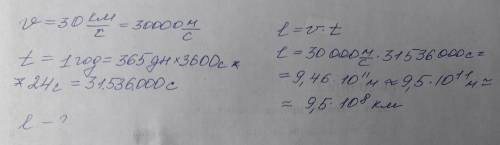 v = 30 км/с = 30000 м/с
t = 1 год = 365 дн × 3600 с ×
× 24 с = 31.536.000 с
l - ?
l = v · t
l = 30 000 м/с · 31 536 000 с =
= 9,46 · 10¹¹ м ≈ 9,5 · 10¹¹ м ≃
≈ 9,5 · 10⁸ км